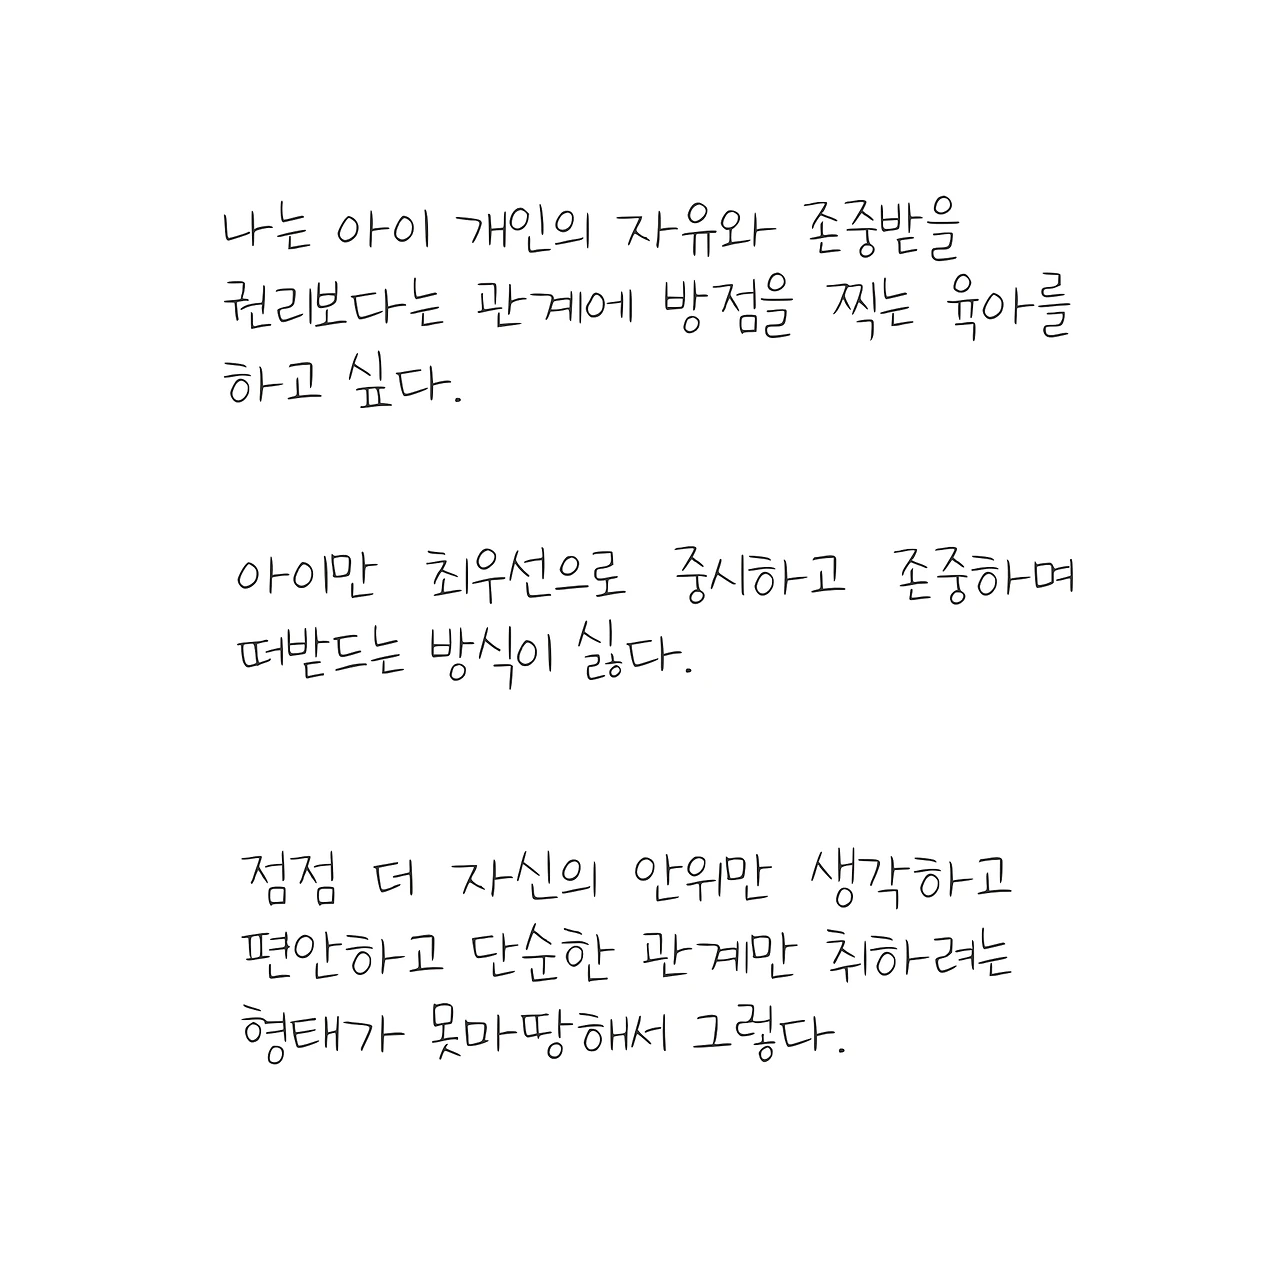 나는 아이 개인의 자유와 존중받을
권리보다는 관계에 방점을 찍는 육아를
하고 싶다.
아이만 최우선으로 중시하고 존중하며
떠받드는 방식이 싫다.
점점 더 자신의 안위만 생각하고
편안하고 단순한 관계만 취하려는
형태가 못마땅해서 그렇다.